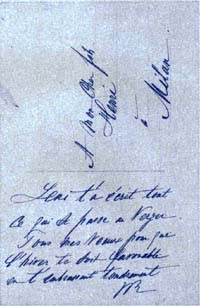 A mon cher fils
Henri
à Milan
Leni t'a écrit tout
ce qui se passe au Verger.
Tous mes voeux pour que
l'hiver te soit favorable
en t'embrassant tendrement